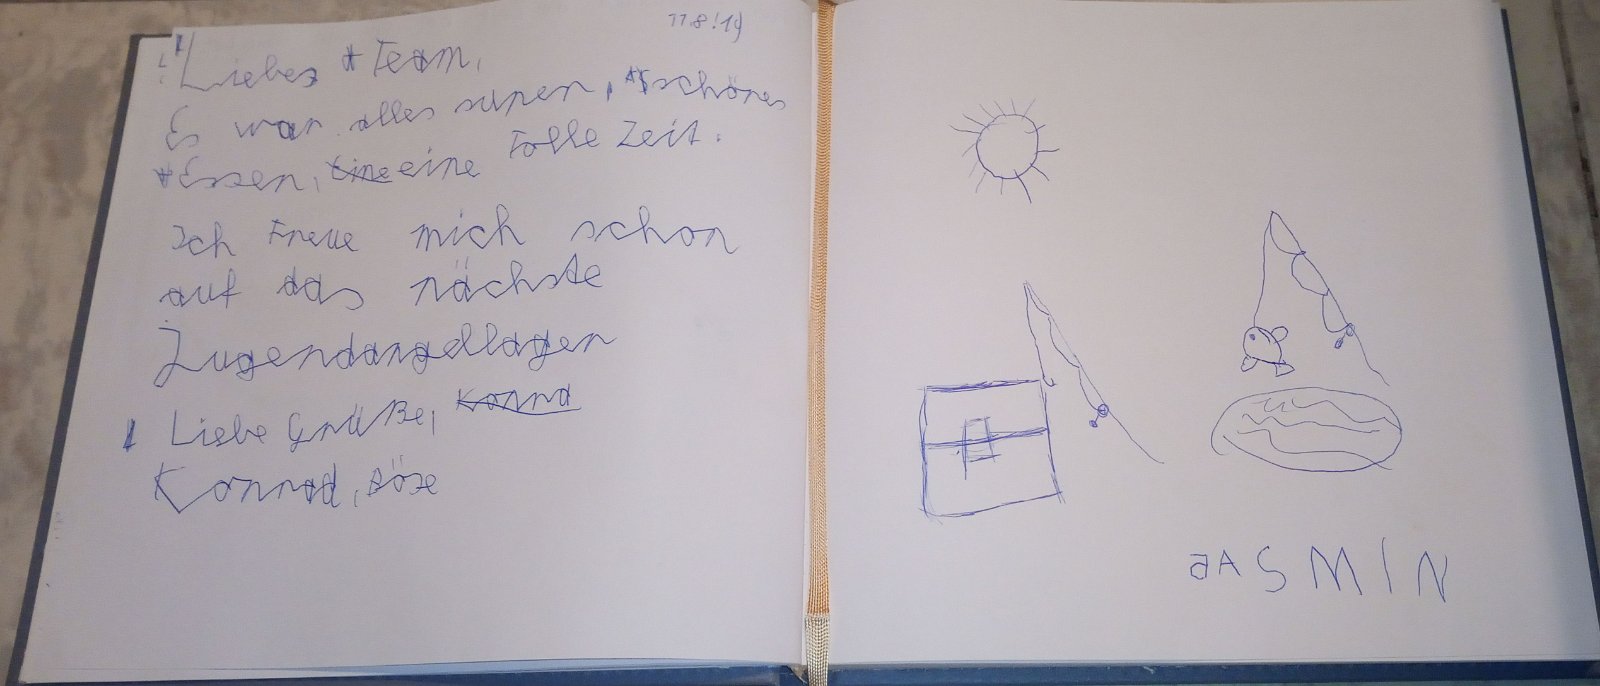 11.8!19
Liebes Team,
Es war alles super, schönes
Essen, eine eine Tolle Zeit.
Ich Freue mich schon
auf das nächste
Jugendangellager
Liebe Grüße, Konrad
Konrad, Böse
JASMIN